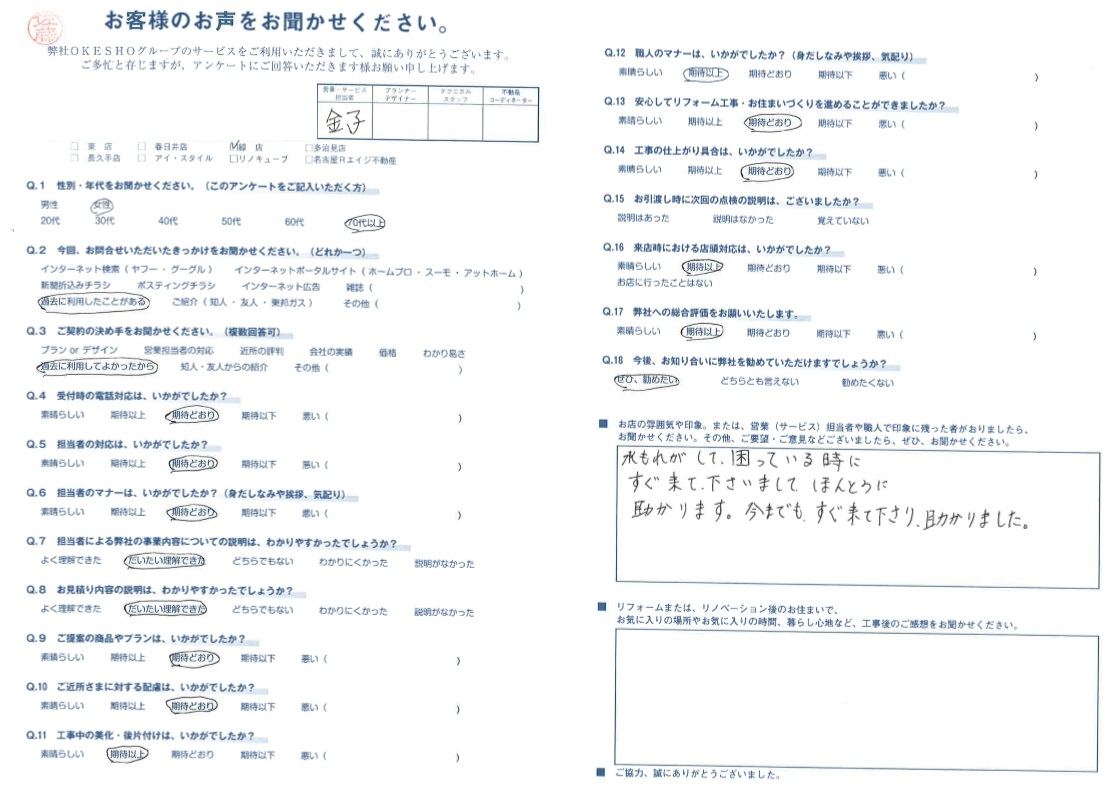 佐藤
お客様のお声をお聞かせください。
弊社OKESHOグループのサービスをご利用いただきまして、誠にありがとうございます。
ご多忙と存じますが、アンケートにご回答いただきます様お願い申し上げます。
営業・サービス担当者 プランナーデザイナー テクニカルスタッフ 不動産コーディネーター
金子
□ 東 店 □ 春日井店 □緑 店 □多治見店
□ 長久手店 □ アイ・スタイル □リノキューブ □名古屋Rエイジ不動産
Q.1 性別・年代をお聞かせください。(このアンケートをご記入いただく方)
男性 女性
20代 30代 40代 50代 60代 70代以上
Q.2 今回、お問合せいただいたきっかけをお聞かせください。(どれか一つ)
インターネット検索(ヤフー・グーグル) インターネットポータルサイト(ホームプロ・スーモ・アットホーム)
新聞折込みチラシ ポスティングチラシ インターネット広告 雑誌( )
過去に利用したことがある ご紹介(知人・友人・東邦ガス) その他( )
Q.3 ご契約の決め手をお聞かせください。(複数回答可)
プラン or デザイン 営業担当者の対応 近所の評判 会社の実績 価格 わかり易さ
過去に利用してよかったから 知人・友人からの紹介 その他( )
Q.4 受付時の電話対応は、いかがでしたか?
素晴らしい 期待以上 期待どおり 期待以下 悪い( )
Q.5 担当者の対応は、いかがでしたか?
素晴らしい 期待以上 期待どおり 期待以下 悪い( )
Q.6 担当者のマナーは、いかがでしたか?(身だしなみや挨拶、気配り)
素晴らしい 期待以上 期待どおり 期待以下 悪い( )
Q.7 担当者による弊社の事業内容についての説明は、わかりやすかったでしょうか?
よく理解できた だいたい理解できた どちらでもない わかりにくかった 説明がなかった
Q.8 お見積り内容の説明は、わかりやすかったでしょうか?
よく理解できた だいたい理解できた どちらでもない わかりにくかった 説明がなかった
Q.9 ご提案の商品やプランは、いかがでしたか?
素晴らしい 期待以上 期待どおり 期待以下 悪い( )
Q.10 ご近所さまに対する配慮は、いかがでしたか?
素晴らしい 期待以上 期待どおり 期待以下 悪い( )
Q.11 工事中の美化・後片付けは、いかがでしたか?
素晴らしい 期待以上 期待どおり 期待以下 悪い( )
Q.12 職人のマナーは、いかがでしたか?(身だしなみや挨拶、気配り)
素晴らしい 期待以上 期待どおり 期待以下 悪い( )
Q.13 安心してリフォーム工事・お住まいづくりを進めることができましたか?
素晴らしい 期待以上 期待どおり 期待以下 悪い( )
Q.14 工事の仕上がり具合は、いかがでしたか?
素晴らしい 期待以上 期待どおり 期待以下 悪い( )
Q.15 お引渡し時に次回の点検の説明は、ございましたか?
説明はあった 説明はなかった 覚えていない
Q.16 来店時における店頭対応は、いかがでしたか?
素晴らしい 期待以上 期待どおり 期待以下 悪い( )
お店に行ったことはない
Q.17 弊社への総合評価をお願いいたします。
素晴らしい 期待以上 期待どおり 期待以下 悪い( )
Q.18 今後、お知り合いに弊社を勧めていただけますでしょうか?
ぜひ、勧めたい どちらとも言えない 勧めたくない
■ お店の雰囲気や印象。または、営業(サービス)担当者や職人で印象に残った者がおりましたら、
お聞かせください。その他、ご要望・ご意見などございましたら、ぜひ、お聞かせください。
水もれがして、困っている時に
すぐ来て、下さいまして ほんとうに
助かります。今までも、すぐ来て下さり、助かりました。
■ リフォームまたは、リノベーション後のお住まいで、
お気に入りの場所やお気に入りの時間、暮らし心地など、工事後のご感想をお聞かせください。
■ ご協力、誠にありがとうございました。